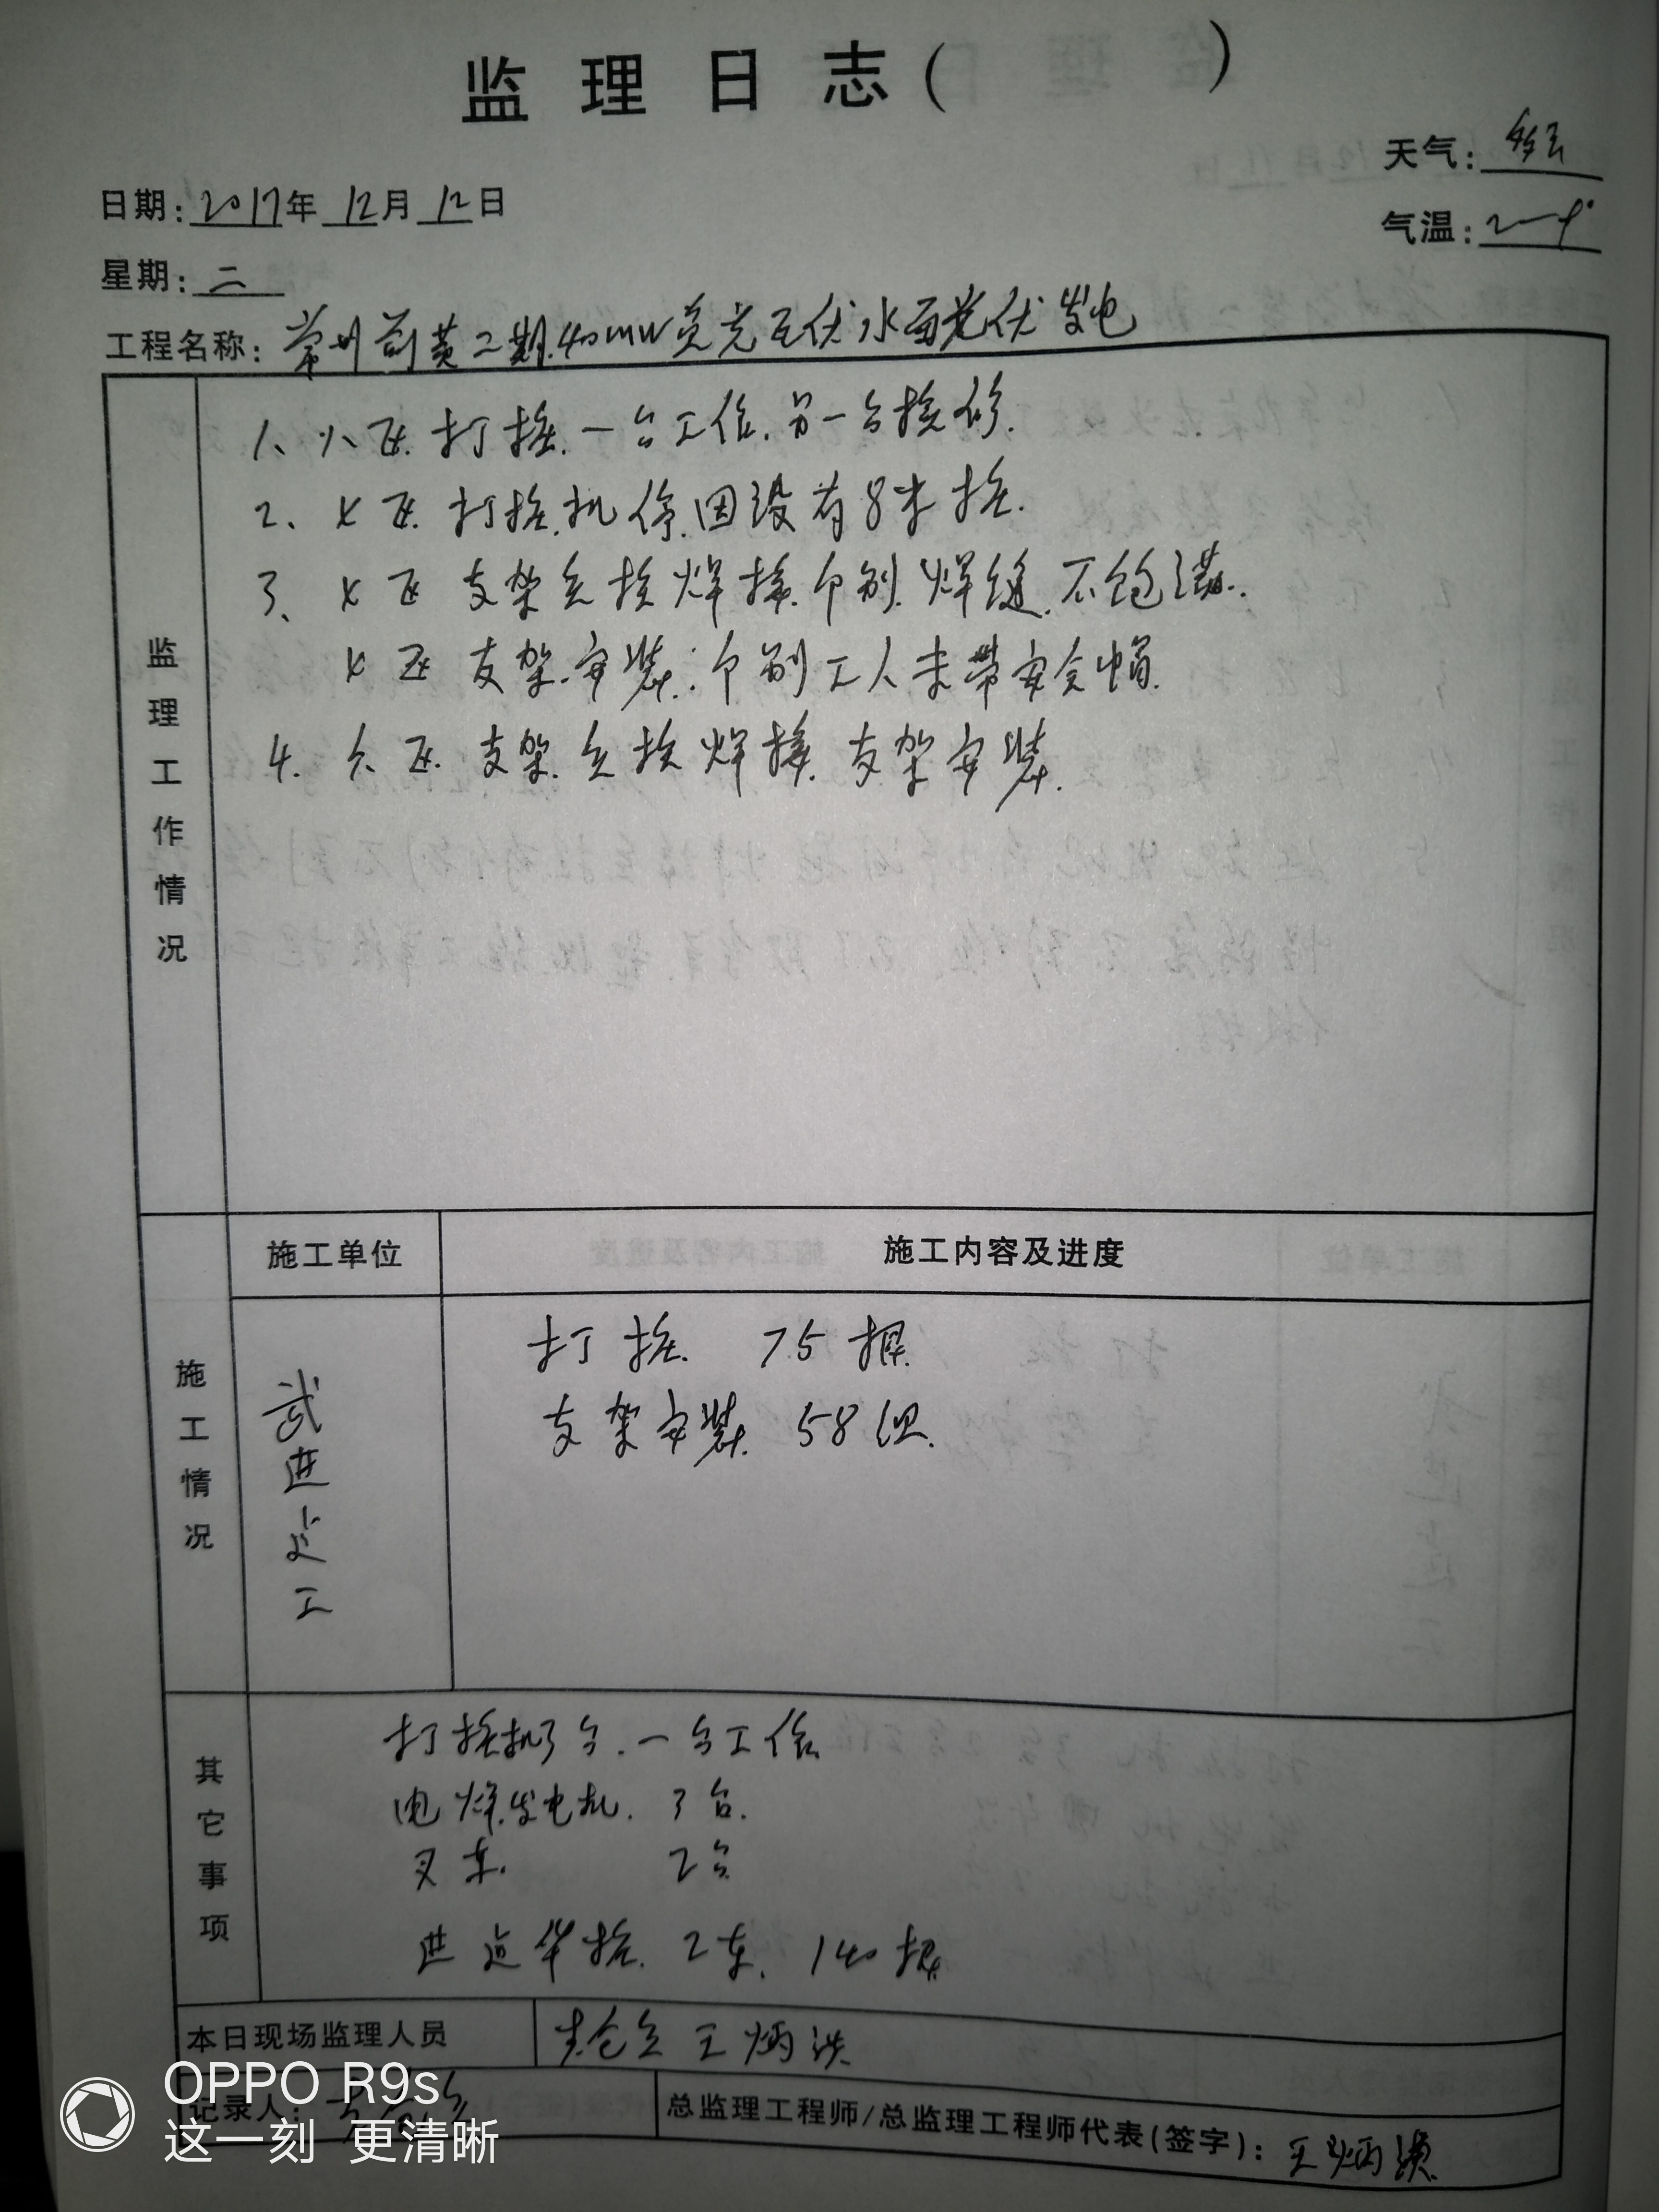 监理日志( )
天气: 多云
日期: 2017年 12月 12日
气温: 2—9°
星期: 二
工程名称: 常州前黄二期.40MW 水面光伏发电
1、八区.打桩.一台工作.另一台检修.
2、七区.打桩机停.因没有8米桩.
3、七区支架立柱焊接.个别.焊缝.不饱满.
七区支架.安装.个别工人未带安全帽.
4.六区.支架.立柱焊接.支架安装.
监理工作情况
施工单位
施工内容及进度
施工情况
武进 工
打桩. 75根.
支架安装. 58组.
其它事项
打桩机3台.一台工作
电焊.发电机. 3台.
叉车. 2台
进 桩. 2车. 140根.
本日现场监理人员
王炳
记录人:
总监理工程师/总监理工程师代表(签字): 王炳
OPPO R9s
这一刻 更清晰